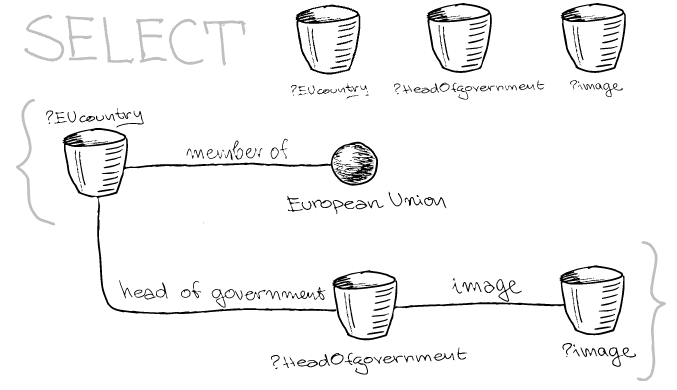 SELECT
?EUcountry ?HeadOfgovernment ?image
?EUcountry
member of
European Union
head of government
image
?HeadOfgovernment
?image